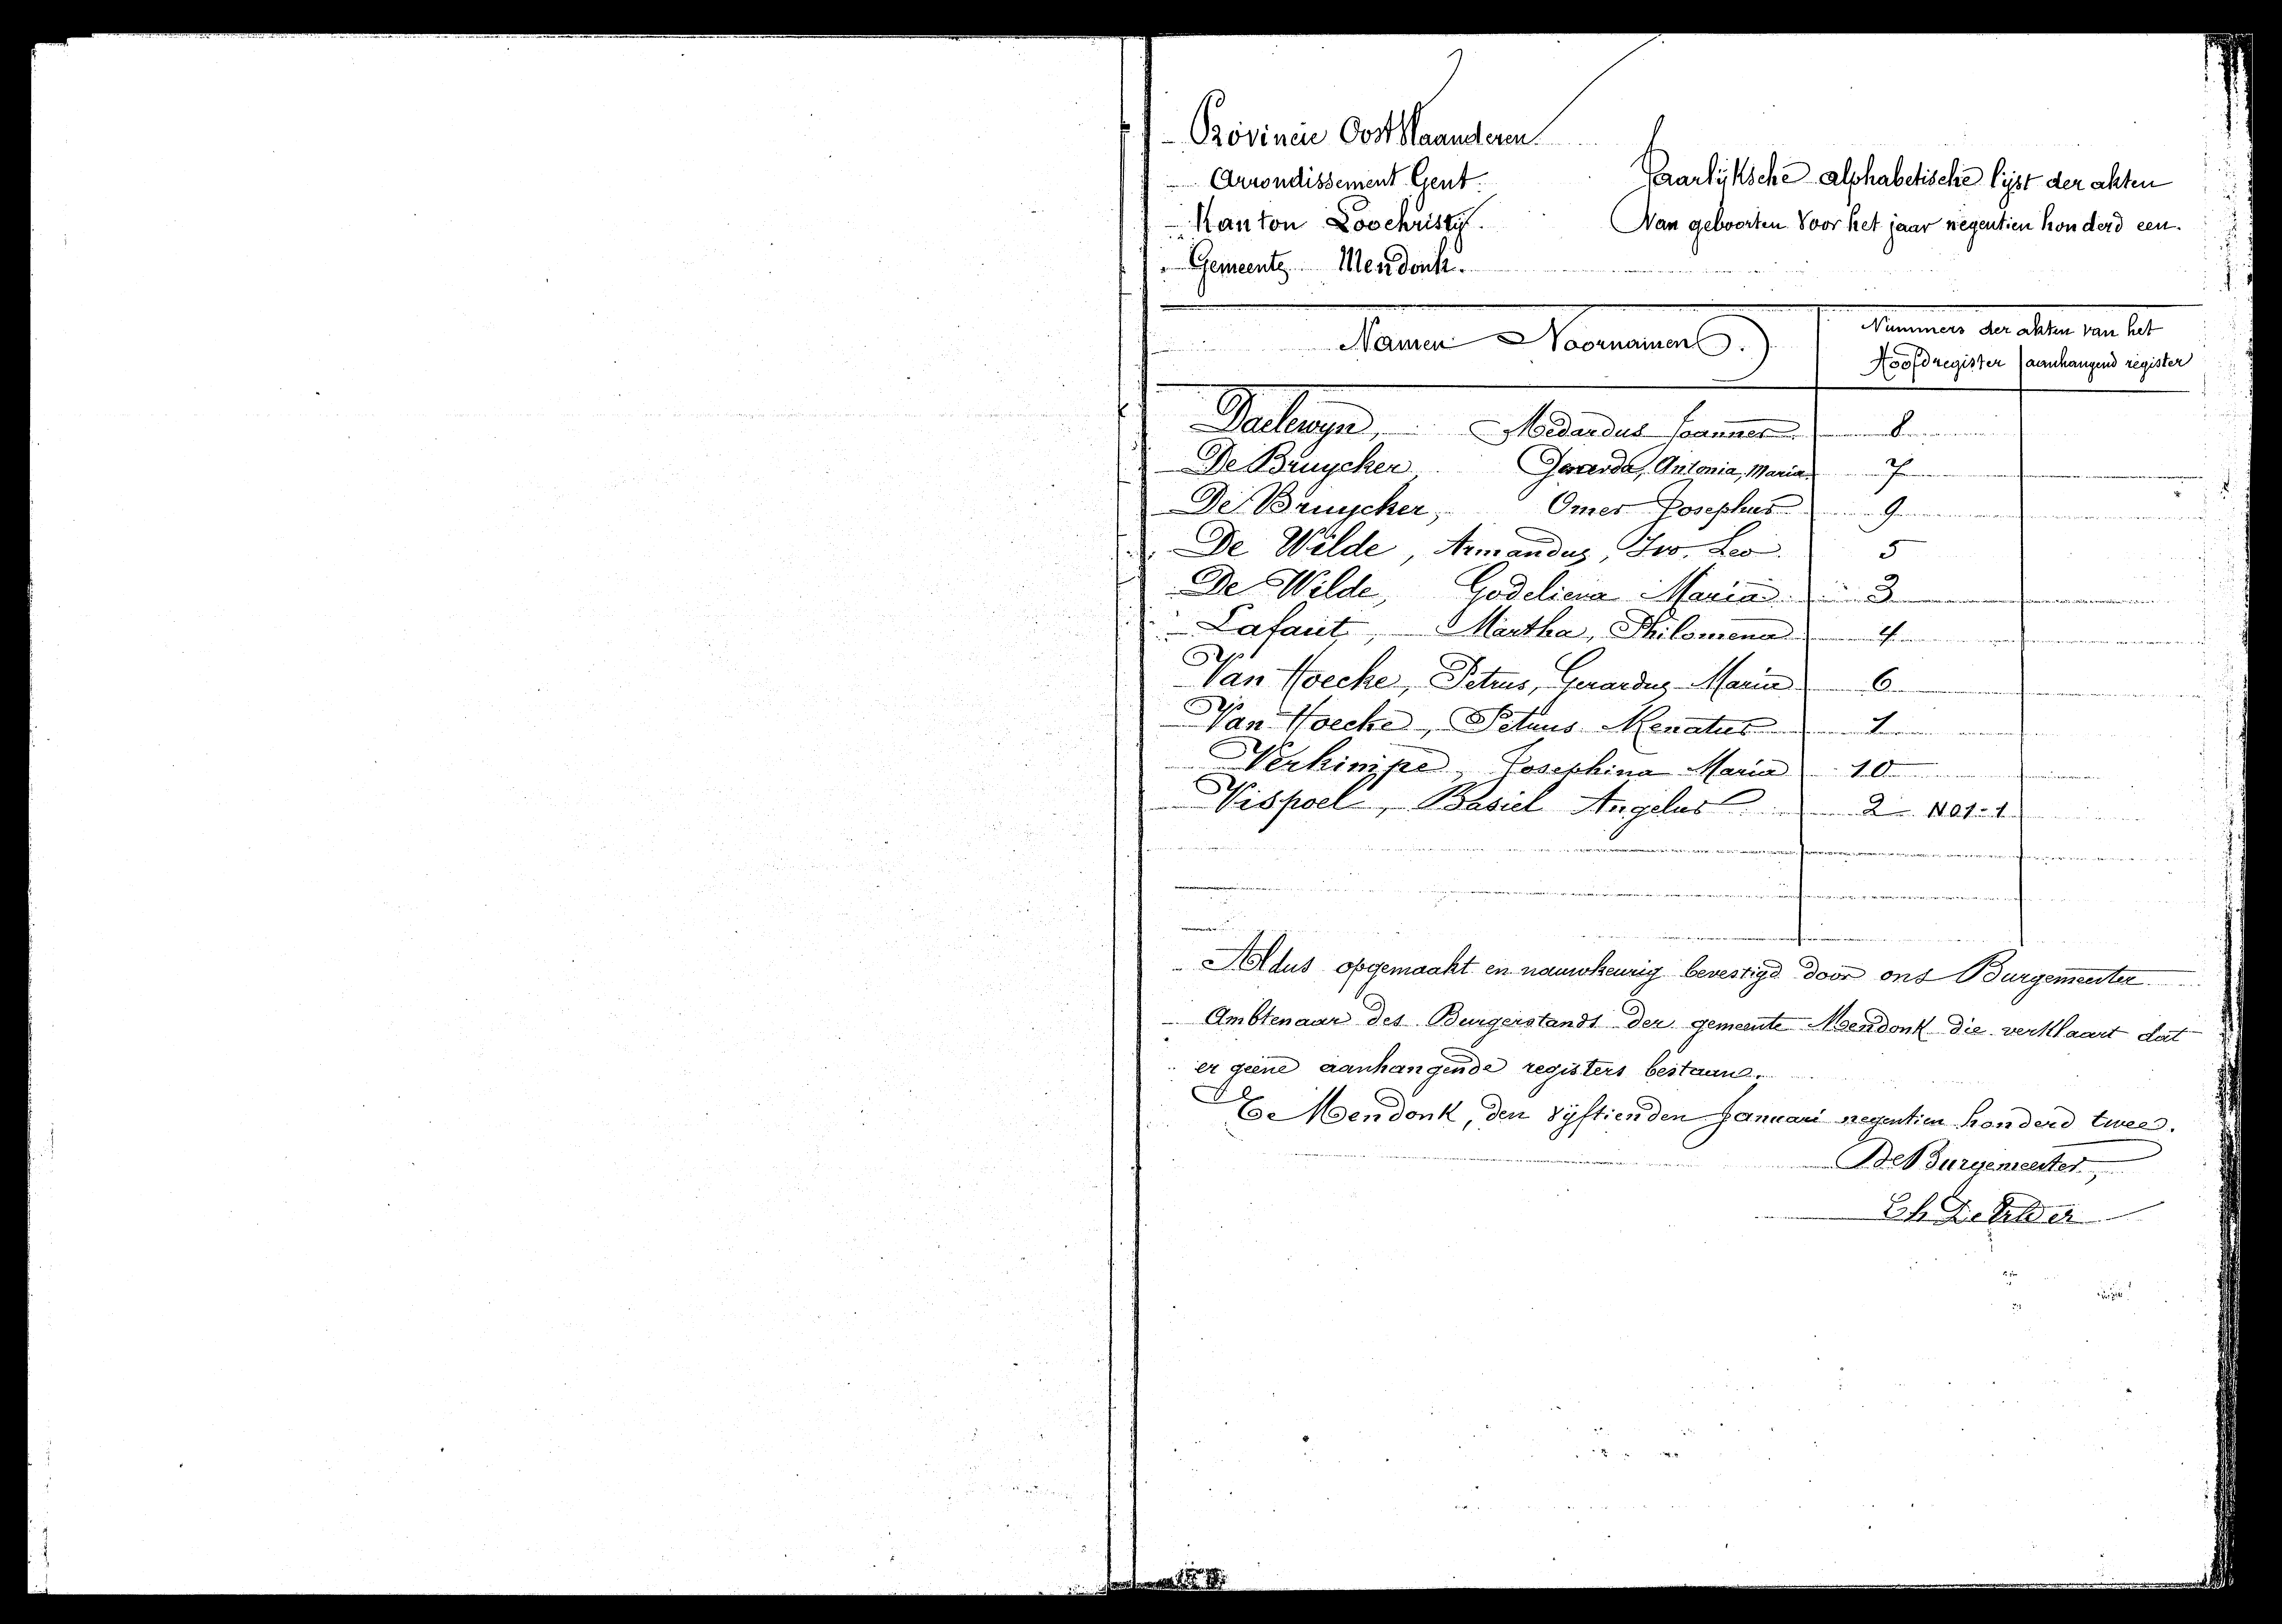 Provincie Oost Vlaanderen
Arrondissement Gent.
Kanton Loochristy.
Gemeente Mendonk.
Jaarlijksche alphabetische lijst der akten
Van geboorten voor het jaar negentien honderd een.
Namen Voornamen
Nummers der akten van het
Hoofdregister aanhangend register
Daelewyn, Medardus Joannes 8
De Bruycker Gerarda, Antonia, Maria 7
De Bruycker, Omer Josephus 9
De Wilde, Armandus, Ivo, Leo. 5
De Wilde, Godelieva Maria 3
Lafaut, Martha, Philomena 4
Van Hoecke, Petrus, Gerardus Maria 6
Van Hoecke, Petrus Renatus 1
Verkimpe, Josephina Maria 10
Vispoel, Basiel Angelus 2 1901-1
Aldus opgemaakt en nauwkeurig bevestigd door ons Burgemeester
Ambtenaar des Burgerstands der gemeente Mendonk die verklaart dat
er geene aanhangende registers bestaan.
Te Mendonk, den vijftienden Januari negentien honderd twee.
De Burgemeester,